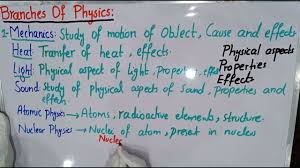 Branches Of Physics:
1- Mechanics: Study of motion of Object, Cause and effects
Heat: Transfer of heat, effects. Physical aspects
Light: Physical aspect of light, Properties, effect Properties
Effects
Sound: Study of physical aspects of Sound, Properties and effects.
Atomic Physics → Atoms, radioactive elements, structure
Nuclear Physics → Nuclei of atom, present in nucleus
Nucle